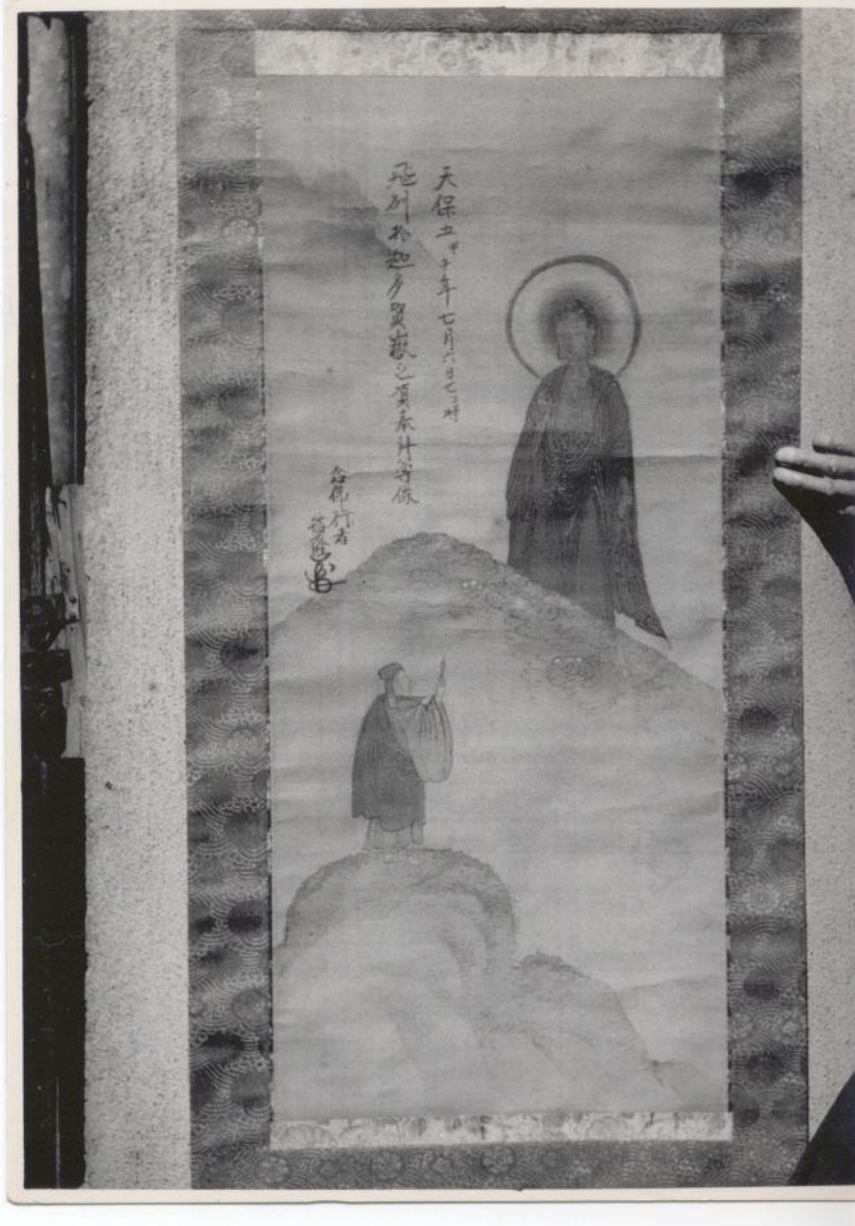 天保五甲午年七月六日七ツ時
飛州於迦多賀嶽之嶺奉拝尊像
念佛行者
播隆